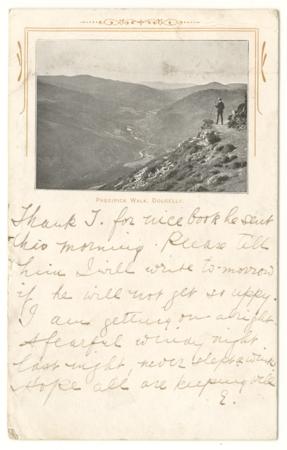 PRECIPICE WALK, DOLGELLY.
Thank T. for nice book he sent
this morning. Please tell
him I will write to-morrow
if he will not get so uppy.
I am getting on alright
A fearful windy night
last night, never slept a wink
Hope all are keeping well
E.